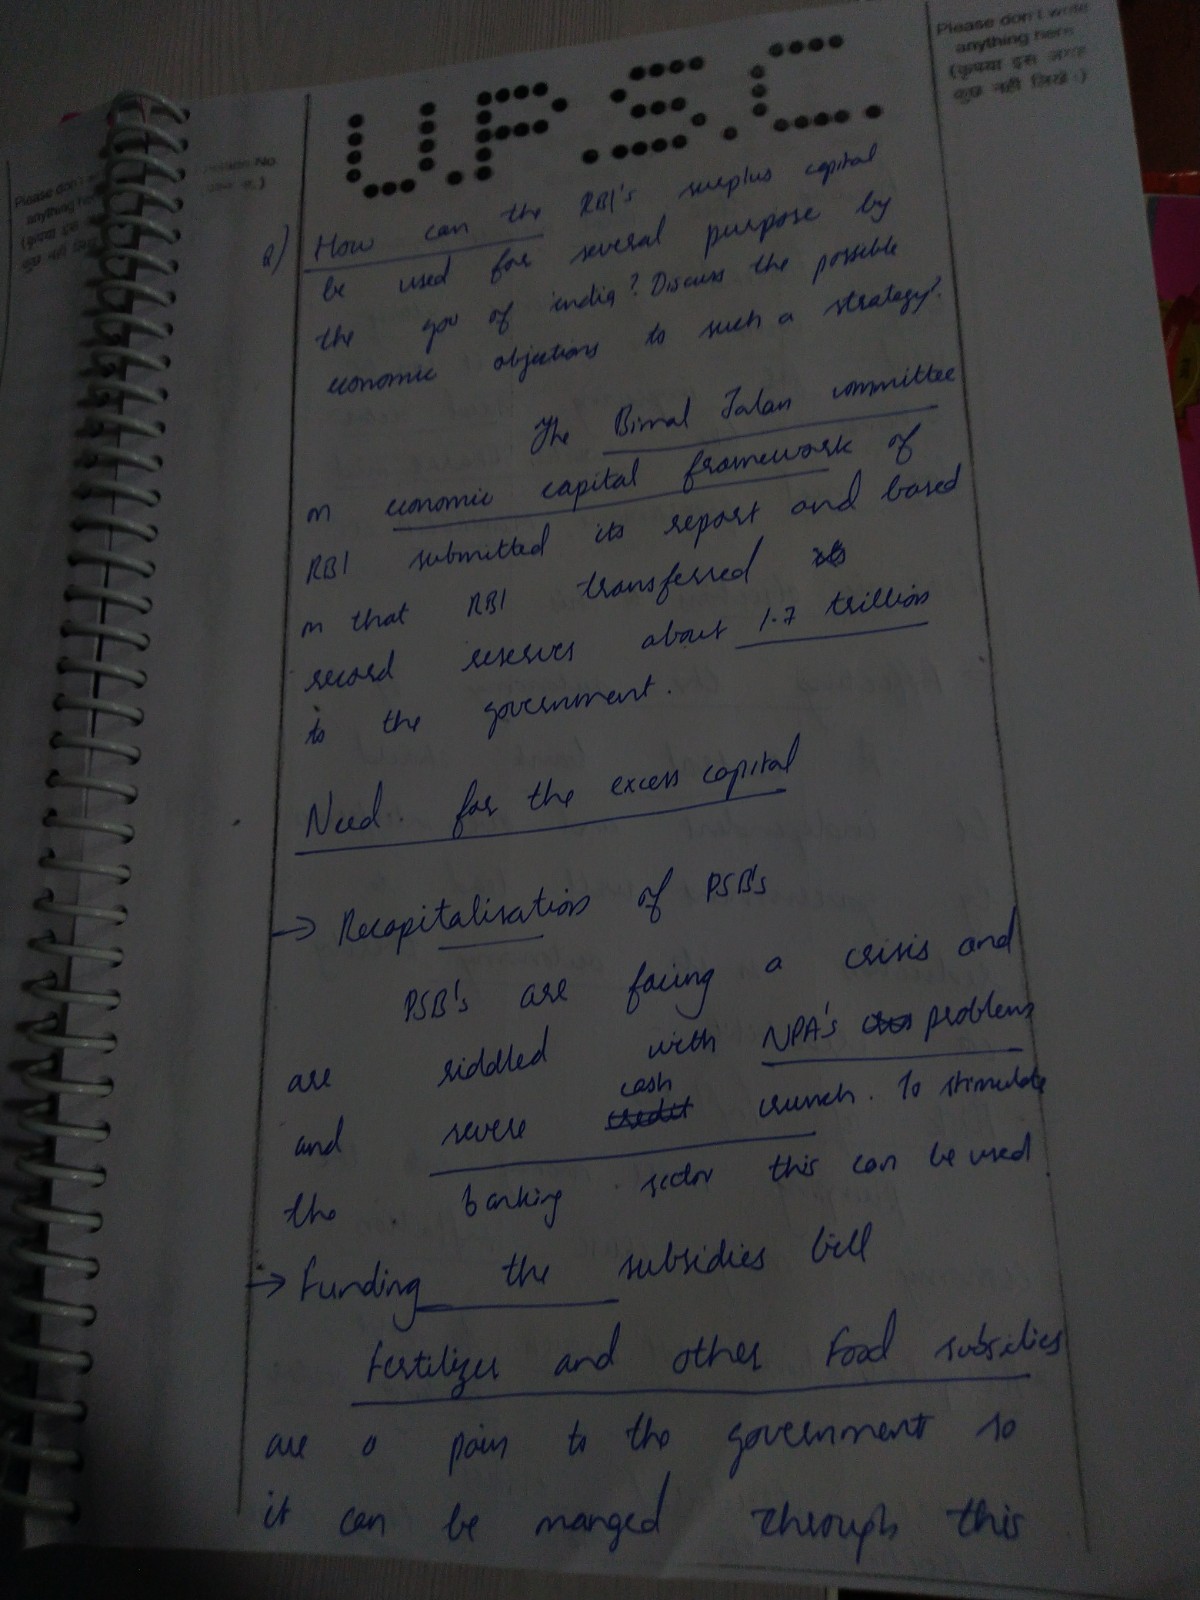 U.P.S.C.
Please don't write
anything here
(कृपया इस जगह
कुछ नहीं लिखें।)
Please don't
anything here
No.
Q) How can the RBI's surplus capital
be used for several purpose by
the gov of india? Discuss the possible
economic objections to such a strategy?
The Bimal Jalan committee
on economic capital framework of
RBI submitted its report and based
on that RBI transferred
record reserves about 1.7 trillion
to the government.
Need for the excess capital
→ Recapitalisation of PSB's
PSB's are facing a crisis and
are riddled with NPA's problems
and severe cash crunch. To stimulate
the banking sector this can be used
→ Funding the subsidies bill
Fertilizer and other Food subsidies
are a pain to the government so
it can be manged through this